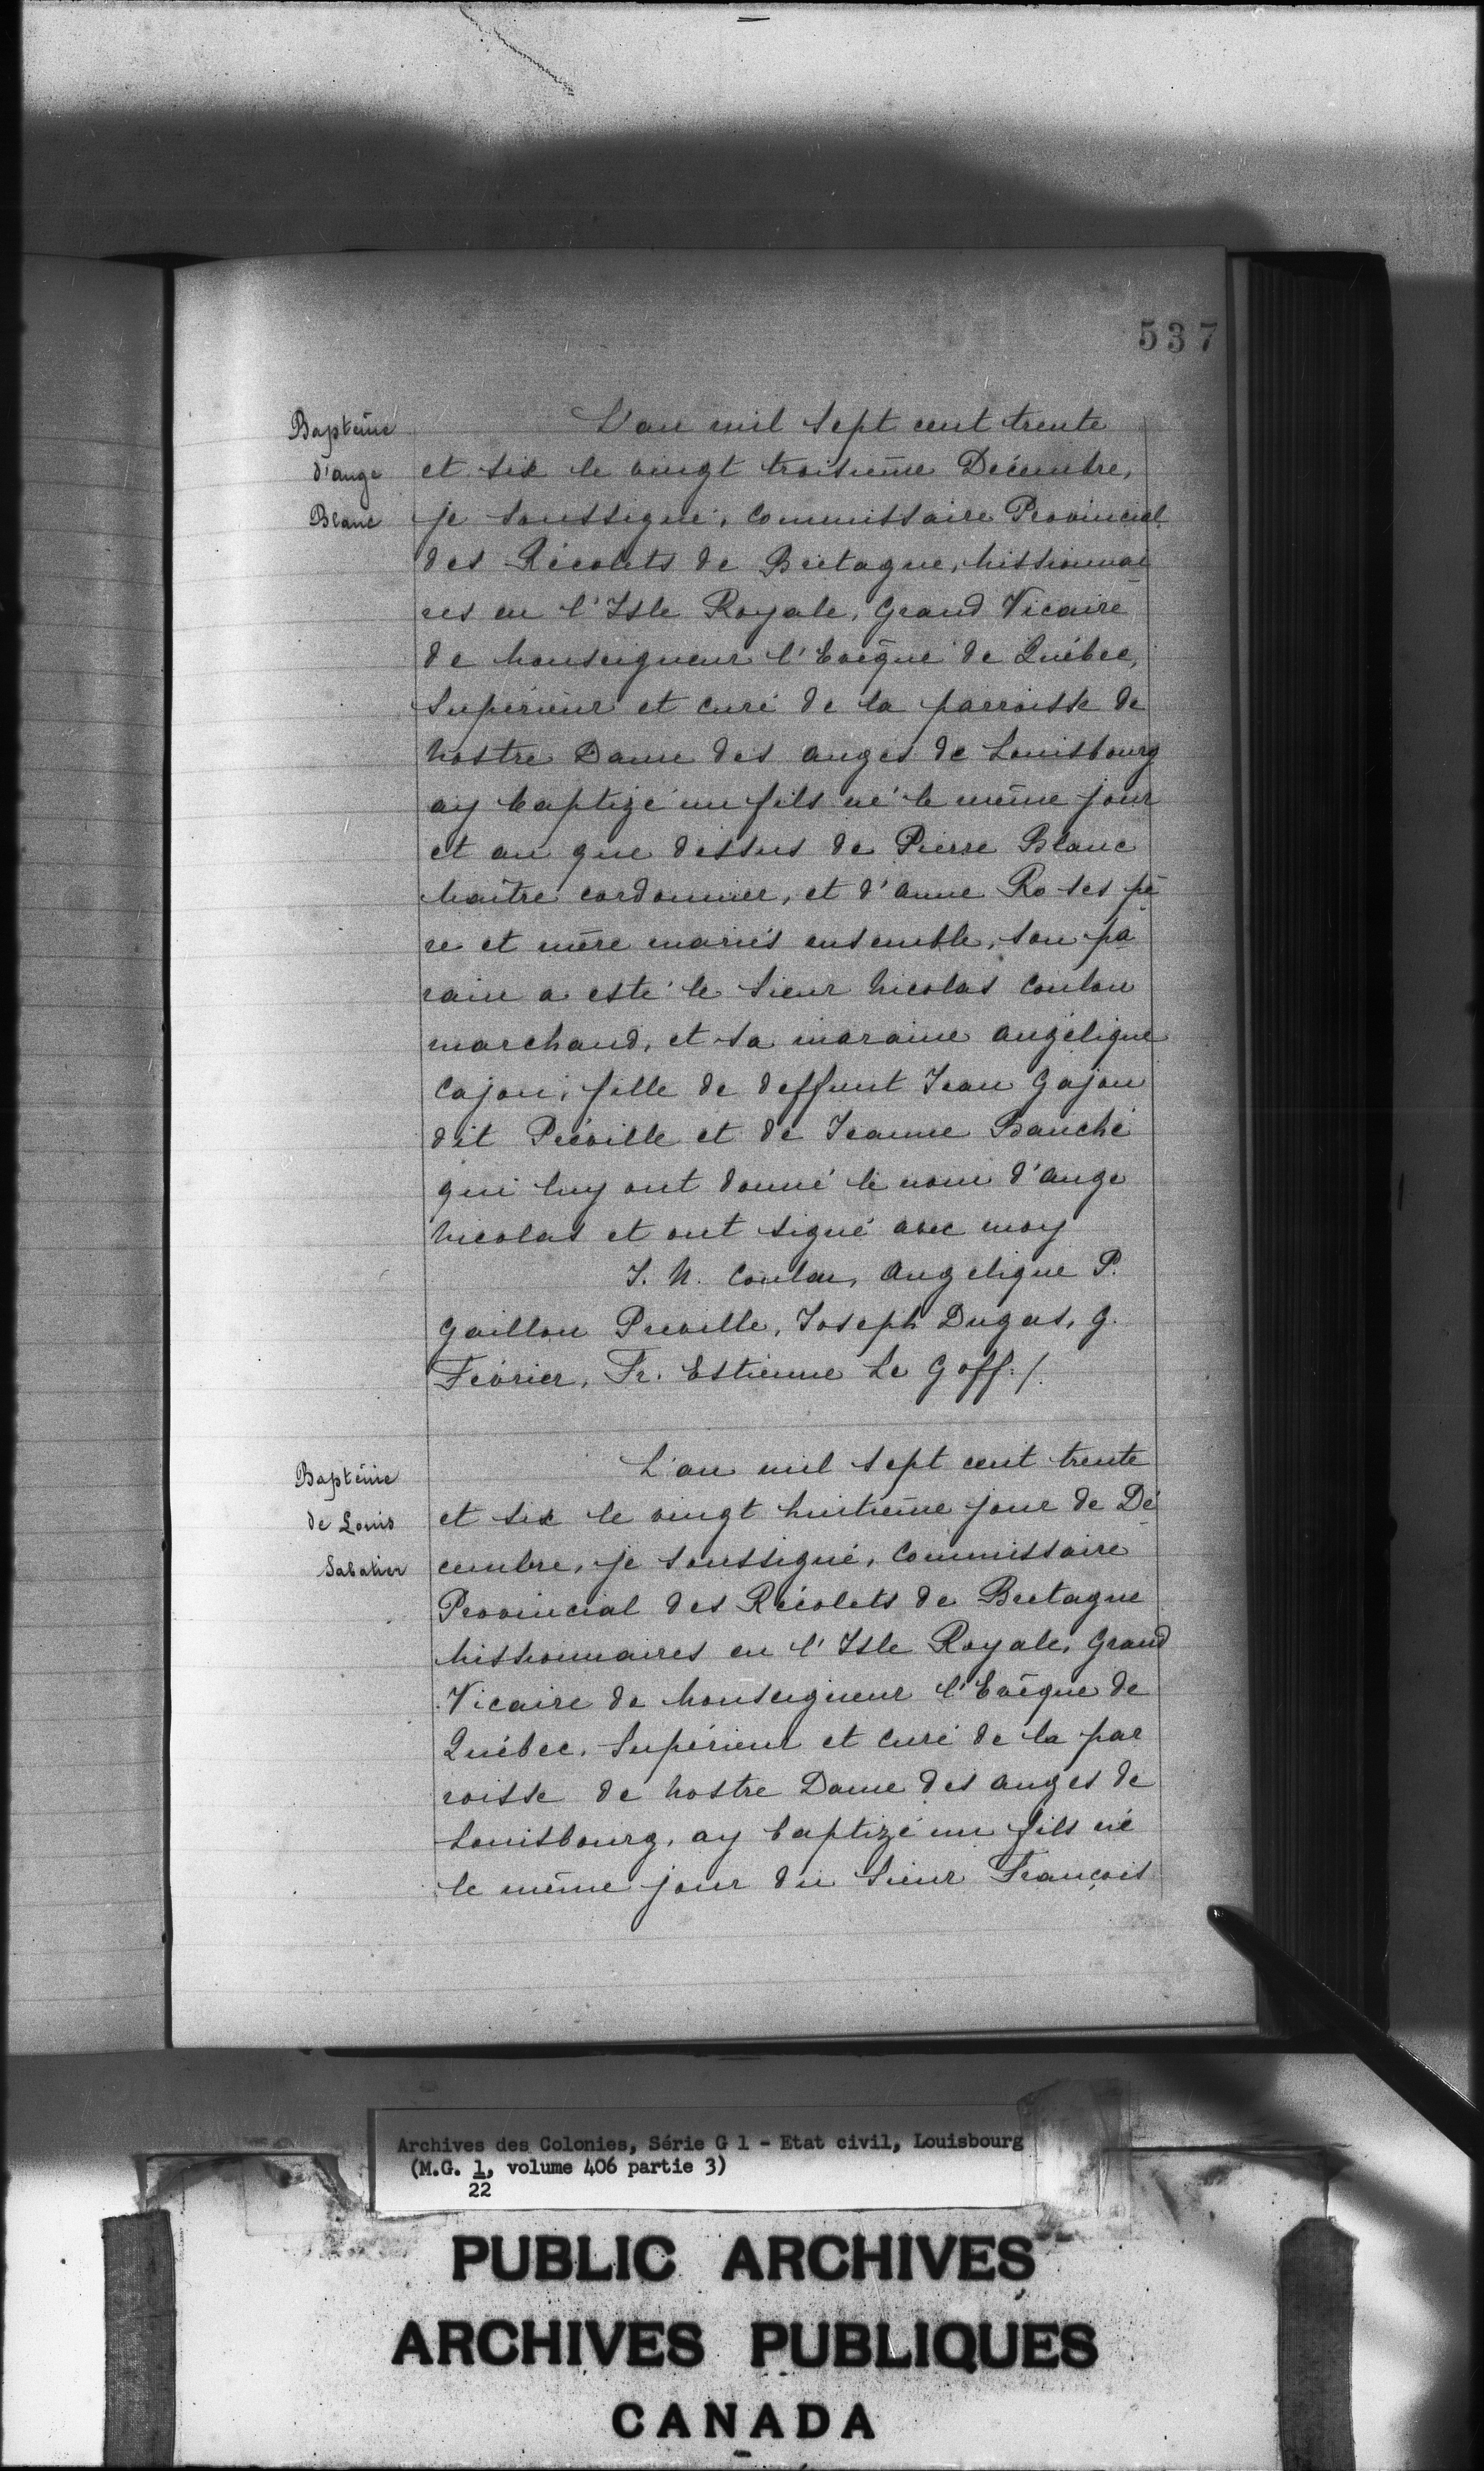 537
Baptême
d'ange
Blanc
L'an mil sept cent trente
et six le vingt troisième Décembre,
je soussigné, Commissaire Provincial
des Récolets de Bretagne, Missionnai
res en l'Isle Royale, Grand Vicaire
de Monseigneur l'Evêque de Québec,
Supérieur et curé de la parroisse de
Nostre Dame des anges de Louisbourg
ay baptizé un fils né le même jour
et an que dessus de Pierre Blanc
Maître cordonnier, et d'anne Ro ses pè
re et mère mariés ensemble, son pa
rain a esté le Sieur Nicolas Coulon
marchand, et sa maraine angélique
Cajon, fille de deffunt Jean Gajon
dit Préville et de Jeanne Bauché
qui luy ont donné le nom d'ange
Nicolas et ont signé avec moy
J. N. Coulon, Angelique P.
Gaillon Preville, Joseph Dugas, G.
Février, Fr. Estienne Le Goff./.
Baptême
de Louis
Sabatier
L'an mil sept cent trente
et six le vingt huitième jour de Dé
cembre, je soussigné, Commissaire
Provincial des Récolets de Bretagne
Missionnaires en l'Isle Royale, Grand
Vicaire de Monseigneur l'Evêque de
Québec, Supérieur et curé de la par
roisse de Nostre Dame des anges de
Louisbourg, ay baptizé un fils né
le même jour du Sieur François
Archives des Colonies, Série G 1 - Etat civil, Louisbourg
(M.G. 1, volume 406 partie 3)
22
PUBLIC ARCHIVES
ARCHIVES PUBLIQUES
CANADA